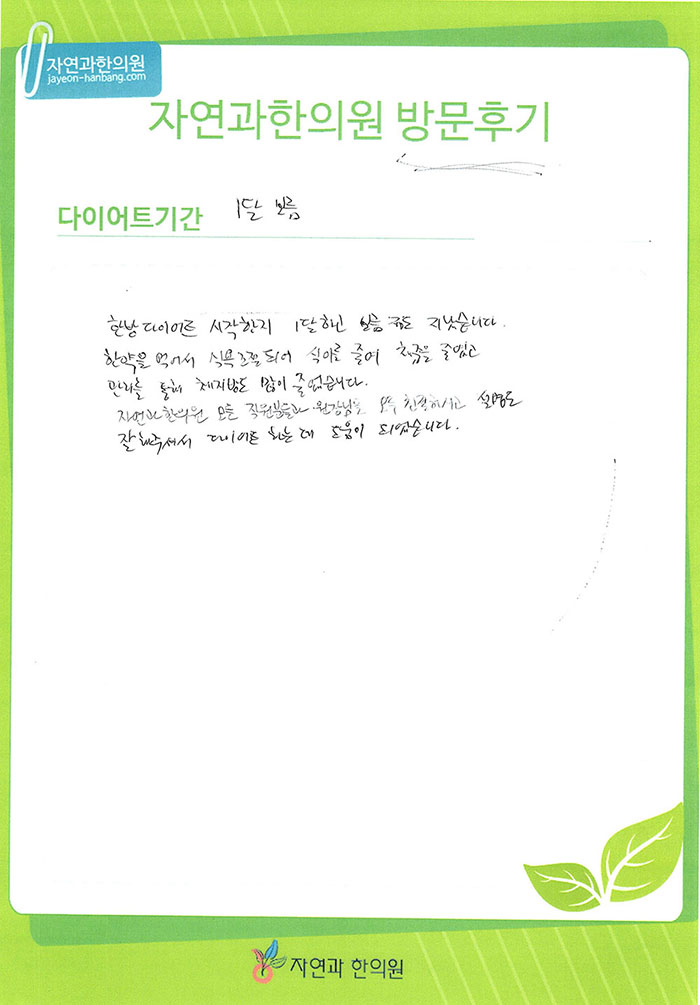 자연과한의원
jayeon-hanbang.com
자연과한의원 방문후기
다이어트기간 1달 보름
한방다이어트 시작한지 1달하고 보름 정도 지났습니다.
한약을 먹어서 식욕조절되어 식사를 줄여 체중을 줄였고
을 통해 체지방도 많이 줄었습니다.
자연과한의원 모든 직원분들과 원장님도 모두 친절하시고 설명도
잘해주셔서 다이어트 하는데 도움이 되었습니다.
자연과 한의원